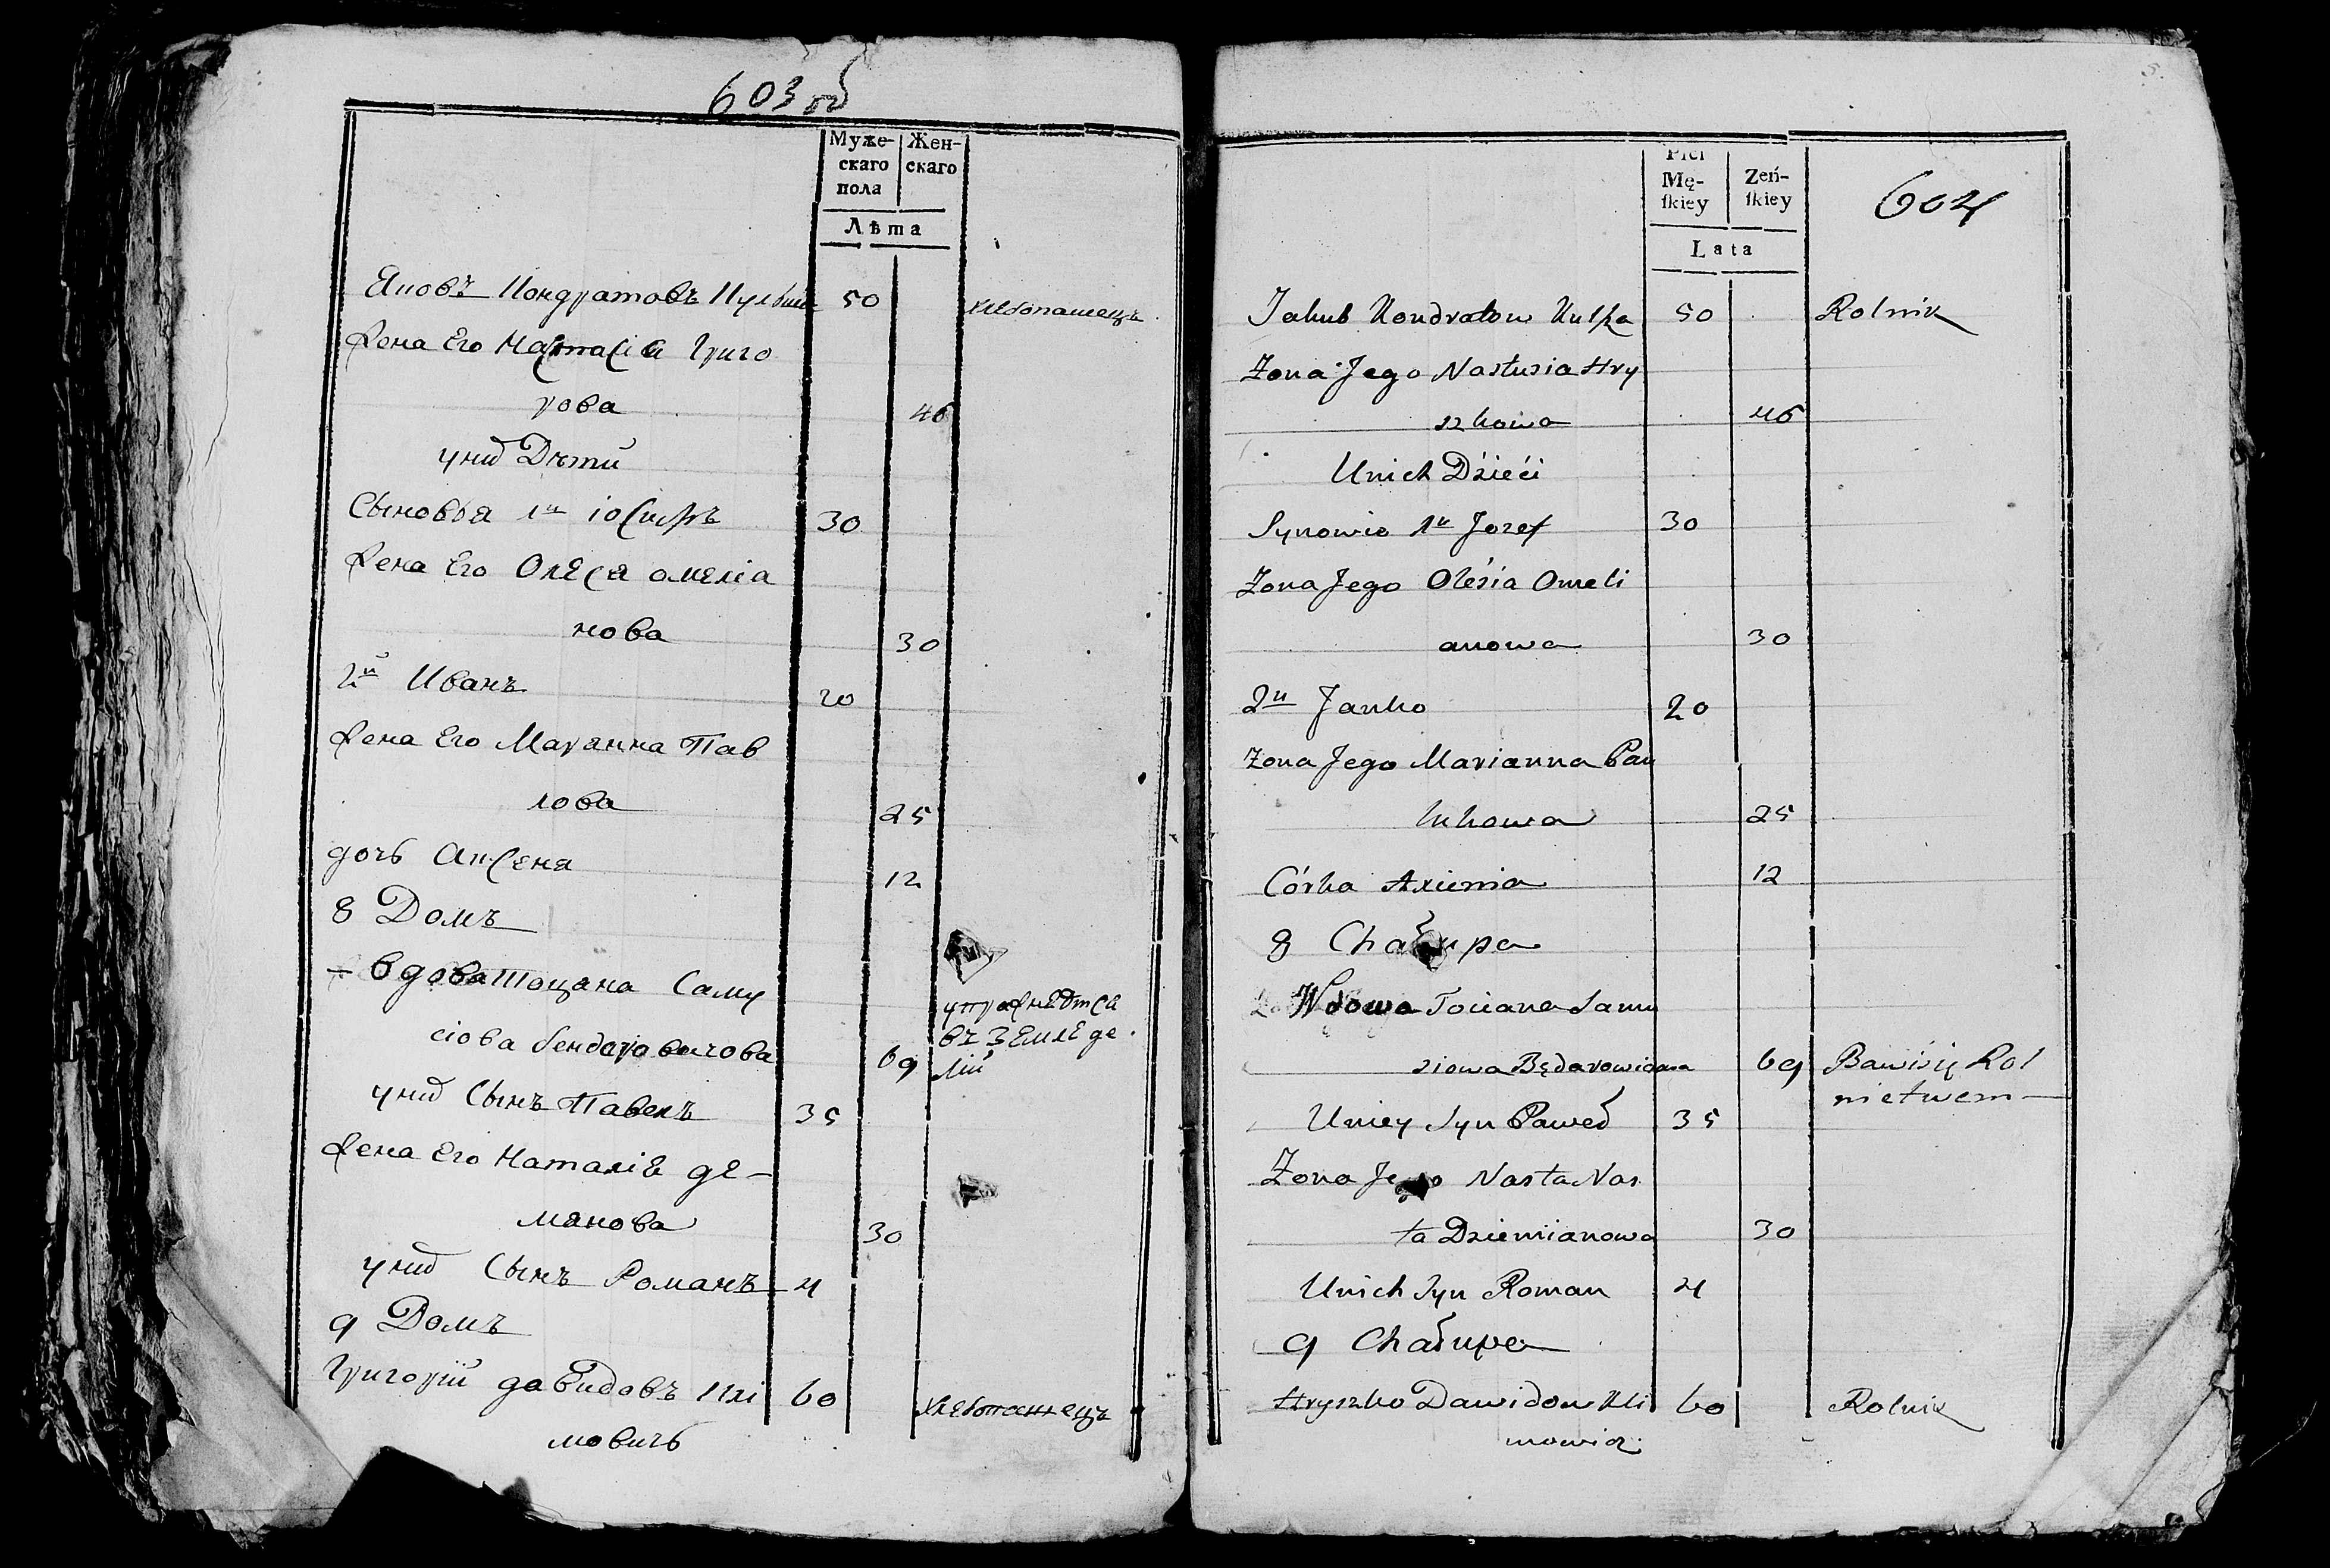 603 об
Муже-
скаго
пола
Жен-
скаго
Лѣта
Яковъ Кондратовъ Кульша 50 хлебопашецъ
Жена Его Настасіа Григо
рова 46
у них Дѣти
Сыновья 1й іосифъ 30
Жена Его Олеся омеліа
нова 30
2й Иванъ 20
Жена Его Марянна Пав
лова 25
дочь Аксеня 12
8 Домъ
вдова Тоцяна Саму
сіова бендаровичова 69
упражнятся
въ земледе
ліи
у них Сынъ Павелъ 35
Жена Его Наталіа де-
мянова 30
у них Сынъ Романъ 4
9 Домъ
Григорій давидовъ Кли 60 хлебопашецъ
мовичъ
604
Płci
Mę-
ſkiey
Zeń-
ſkiey
Lata
Jakub Kondratow Kulſza 50 Rolnik
Zona Jego Nastusia Hry
szkowa 46
Unich Dzieći
Synowie 1n Jozef 30
Zona Jego Olésia Omeli
anowa 30
2n Janko 20
Zona Jego Marianna Paw
lukowa 25
Córka Axienia 12
8 Chałupa
Wdowa Tociana Samu
siowa Będarowiczowa 69 Bawi się Rol
nictwem
Uniey Syn Paweł 35
Zona Jego Nasta Nas
ta Dziemianowa 30
Unich Syn Roman 4
9 Chałupa
Hryszko Dawidow Kli 60 Rolnik
mowicz